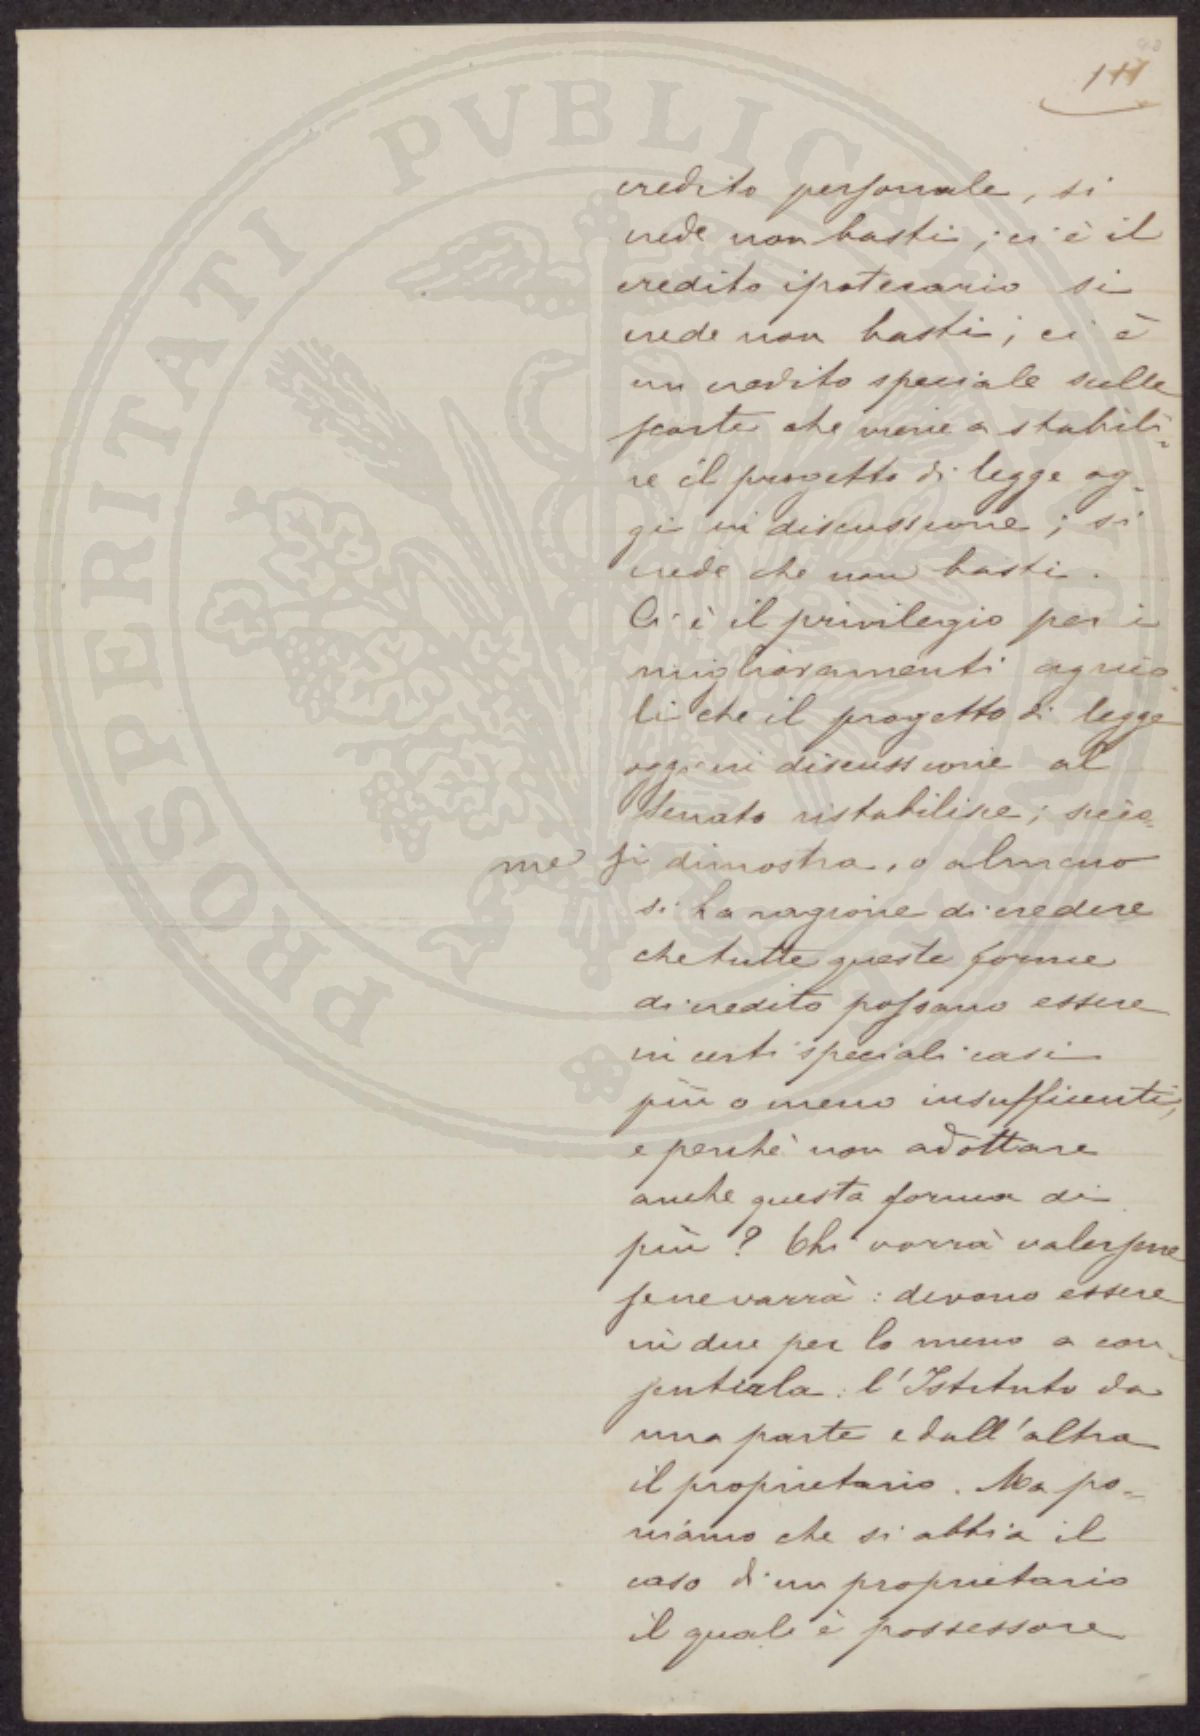 111
credito personale, si
crede non basti; ci è il
credito ipotecario si
crede non basti; ci è
un credito speciale sulle
parte che viene a stabili-
re il progetto di legge og-
gi in discussione; si
crede che non basti.
Ci è il privilegio per i
miglioramenti agrico-
li che il progetto di legge
oggi in discussione al
Senato ristabilisce; sicco-
me si dimostra, o almeno
si ha ragione di credere
che tutte queste forme
di credito possano essere
in certi speciali casi
più o meno insufficienti,
e perchè non adottare
anche questa forma di
più? Chi vorrà valersene
se ne varrà: devono essere
in due per lo meno a con-
sentirla: l'Istituto da
una parte e dall'altra
il proprietario. Ma po-
niamo che si abbia il
caso di un proprietario
il quale è possessore
PROSPERITATI PVBLICAE